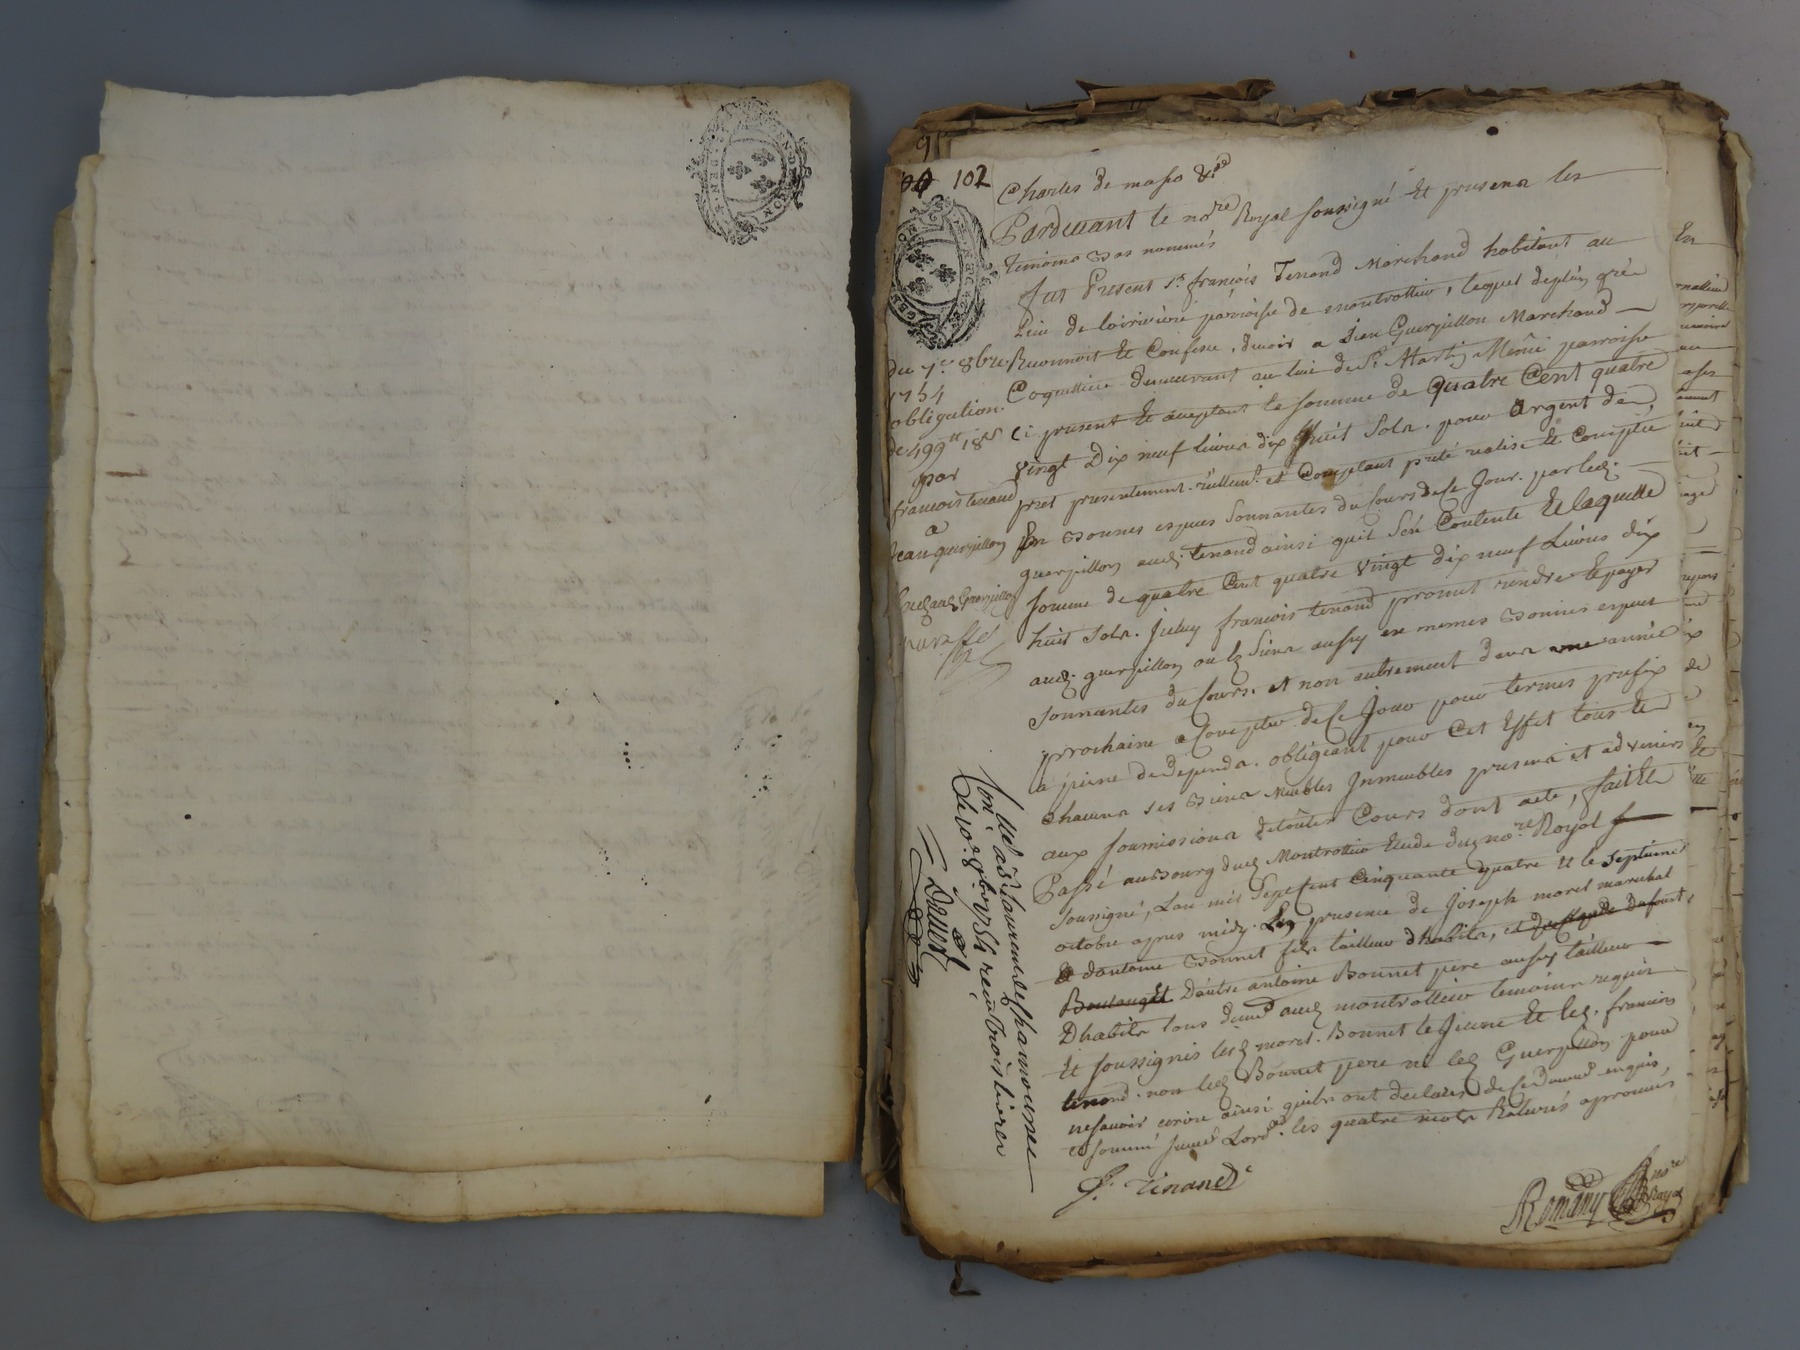 102
Charles de maso
Pardevant le no.re Royal soussigné Et presens les
temoins Bas nommés
fut Present S.r francois Tenand Marchand habitant au
Lieu de loiriviere parroisse de montrottier, lequel deplein gré
Reconnoit Et Confesse, devoir a Jean Guerpillon Marchand
Coquettier demeurant au lieu de S.t Martin Même parroisse
Ci present Et aceptant la somme de quatre Cent quatre
vingt Dix neuf Livres dix huit Sols. pour argent de
pret presentement. réellem.t et Comptant preté realisé Et Comptée
En Bonnes especes Sonnantes du Cours de Ce Jour. par led.
guerpillon aud. tenand ainsi quil S'en Contente De laquelle
somme de quatre Cent quatre vingt dix neuf Livres dix
huit Sols. Jceluy francois tenand promet rendre Et payer
aud. guerpillon ou les Siens aussy en memes Bonnes especes
Sonnantes du Cours. et non autrement dans une année
prochaine a Compter de Ce Jour pour termes prefix
a peine de depends. obligeant pour Cet Effet tous Et
chacuns ses Biens Meubles Jmmeubles presens et advenirs
aux soumissions de toutes Cours dont acte, fait Et
Passé au Bourg dud. Montrottier Etude dud. no.re Royal
soussigné, Lan mil Sept Cent Cinquante quatre Et le septieme
octobre apres midy. En presence de Joseph morel marechal
Et dantoine Bonnet fils tailleur dhabits, et
Boulanger Dautre antoine Bonnet pere aussy tailleur
Dhabits tous dem.t aud. montrottier temoins requis
Et soussignés led. morel. Bonnet le Jeune Et led. francois
tenand. non led. Bonnet pere ni led. Guerpillon pour
ne savoir ecrire ainsi quils ont declarés de Ce dument enquis,
et sommé suiv.t Lord.ce les quatre mots Raturés aprouvés
f. Tenand
Romany no.re Royal
du 7.e 8bre
1754
obligation
de 499.tt 18.s
par
francois tenand
a
Jean guerpillon
Con.llé a S.t Laurent de Chamousset
Le 10.e 8bre 1754 recu trois livres